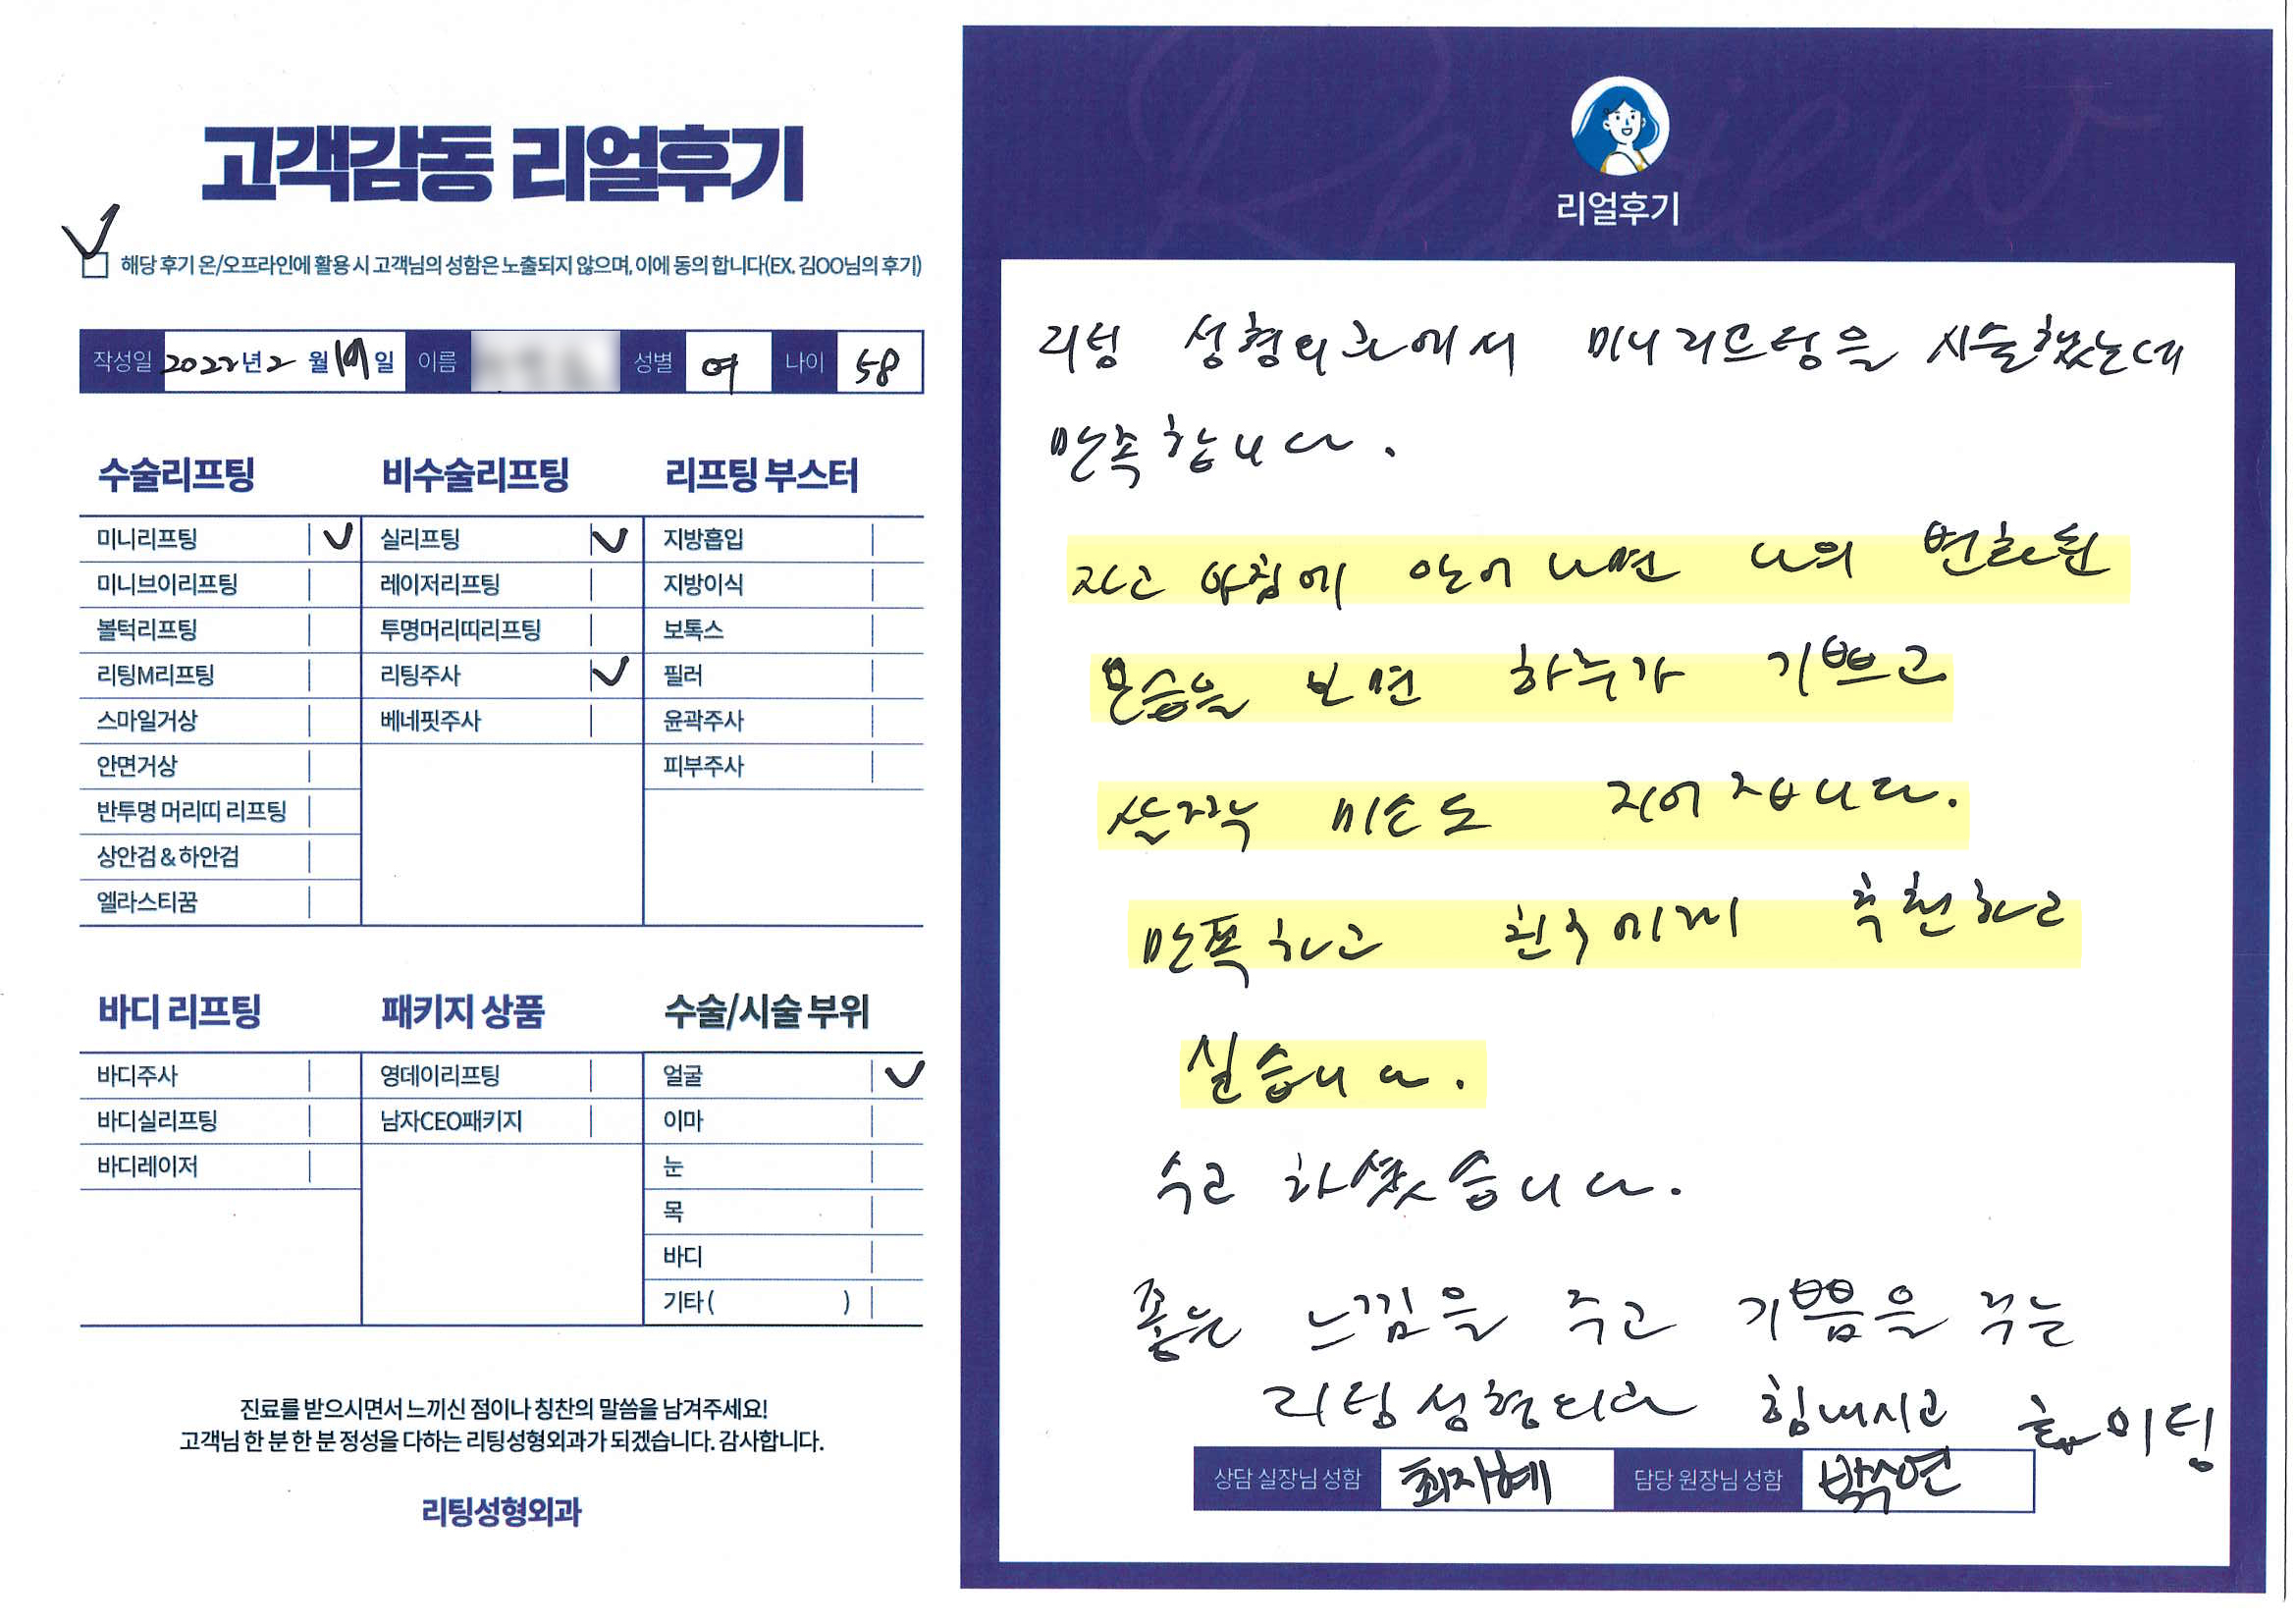 고객감동 리얼후기
해당 후기 온/오프라인에 활용 시 고객님의 성함은 노출되지 않으며, 이에 동의 합니다(EX. 김OO님의 후기)
작성일 2022년 2월 19일 이름 성별 여 나이 58
수술리프팅
미니리프팅
미니브이리프팅
볼턱리프팅
리팅M리프팅
스마일거상
안면거상
반투명 머리띠 리프팅
상안검 & 하안검
엘라스티꿈
비수술리프팅
실리프팅
레이저리프팅
투명머리띠리프팅
리팅주사
베네핏주사
리프팅 부스터
지방흡입
지방이식
보톡스
필러
윤곽주사
피부주사
바디 리프팅
바디주사
바디실리프팅
바디레이저
패키지 상품
영데이리프팅
남자CEO패키지
수술/시술 부위
얼굴
이마
눈
목
바디
기타 ( )
진료를 받으시면서 느끼신 점이나 칭찬의 말씀을 남겨주세요!
고객님 한 분 한 분 정성을 다하는 리팅성형외과가 되겠습니다. 감사합니다.
리팅성형외과
Review
리얼후기
리팅 성형외과에서 미니리프팅을 시술했는데
만족합니다.
자고 아침에 나면 나의 변화된
모습을 보면 하루가 기쁘고
살짝 미소도 지어집니다.
만족하고 친구에게 추천하고
싶습니다.
수고 하셨습니다.
좋은 느낌을 주고 기쁨을 주는
리팅성형외과 힘내시고 화이팅
상담 실장님 성함 최지혜 담당 원장님 성함 박수연